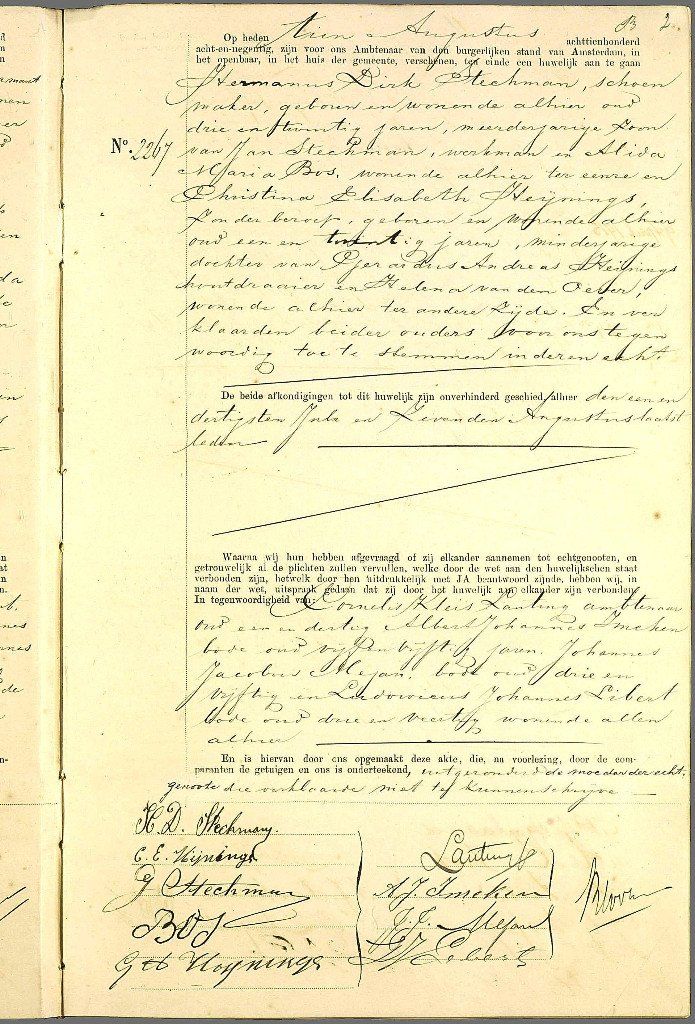 B 2
Op heden tien Augustus achttienhonderd
acht-en-negentig, zijn voor ons Ambtenaar van den burgerlijken stand van Amsterdam, in
het openbaar, in het huis der gemeente, verschenen, ten einde een huwelijk aan te gaan
Hermanus Dirk Stechman, schoen
maker, geboren en wonende alhier oud
drie en twintig jaren, meerderjarige zoon
No. 2267
van Jan Stechman, werkman en Alida
Maria Bos, wonende alhier ter eenre en
Christina Elisabeth Heijnings,
zonder beroep, geboren en wonende alhier
oud een en twintig jaren, minderjarige
dochter van Gerardus Andreas Heijnings
houtdraaier en Helena van den Oever,
wonende alhier ter andere zijde. En ver
klaarden beider ouders voor ons tegen
woordig toe te stemmen in deren echt.
De beide afkondigingen tot dit huwelijk zijn onverhinderd geschied, alhier den een en
dertigsten Juli en zevenden Augustus laatst
leden
Waarna wij hun hebben afgevraagd of zij elkander aannemen tot echtgenooten, en
getrouwelijk al de plichten zullen vervullen, welke door de wet aan den huwelijkschen staat
verbonden zijn, hetwelk door hen uitdrukkelijk met JA beantwoord zijnde, hebben wij, in
naam der wet, uitspraak gedaan dat zij door het huwelijk aan elkander zijn verbonden.
In tegenwoordigheid van: Cornelis Kleis Lauting ambtenaar
oud een en dertig Albert Johannes Imeken
bode oud vijf en vijftig jaren. Johannes
Jacobus Mejan. bode oud drie en
vijftig en Ludovicus Johannes Libert
bode oud drie en veertig wonende allen
alhier
En is hiervan door ons opgemaakt deze akte, die, na voorlezing, door de com-
paranten de getuigen en ons is onderteekend, uitgezonderd de moeder der echt-
genoote die verklaarde niet te kunnen schrijve
H. D. Stechman.
C. E. Heijnings
J Stechman
BOS
G A Heijnings
Lauting
A. J. Imeken
J. J. Mejan
L J Libert